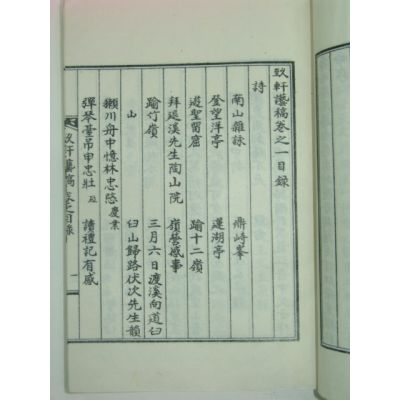 攷軒讆稿卷之一目録
詩
南山雜詠　鼎峙峯
登望洋亭　蓮湖亭
遊聖留窟　踰十二嶺
拜退溪先生陶山院　嶺營感事
踰竹嶺　三月六日渡溪向道臼
山　臼山歸路伏次先生韻
獺川舟中憶林忠愍慶業
彈琴臺吊申忠壯砬　讀禮記有感
攷軒　稿卷之目録　一